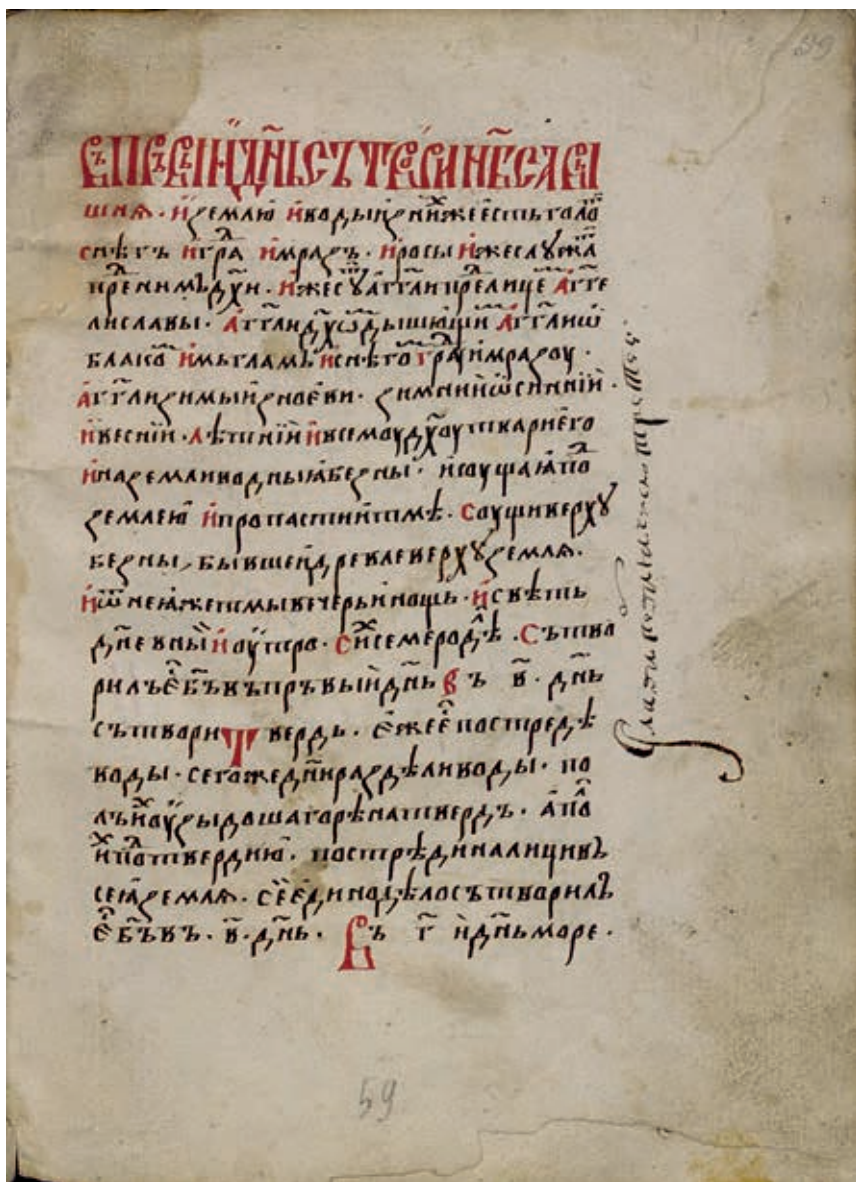 въ първыи д҃нь сътвори нб҃са вы
шняꙗ. и землю и воды из них же есть голо
снѣгъ и гра и мразъ. и росы и же служа
прѣ ним дс҃и. иже су аг҃гли прѣ лице аг҃ге
ли славы. аг҃гли дх҃ѡ дышющи аг҃гли ѡ
блако и мьгламь и снѣго граⷣ и мразоу.
аг҃гли зимы и зноеви. зимнии ѡсиннїи.
и веснїи. лѣтнїи и всемоу дх҃оу тварні его
и на земли водныꙗ безны. и соущаꙗ по
землею и пропасти и тмѣ. соущи верхꙋ
безны, бывшеи древле верхꙋ земля.
и ѿ неꙗже тмы вечерь и нощь. и свѣть
дн҃евныи и оутро. сих семеро дѣ. сътво
рилъ е҃ бг҃ъ въ първыи дн҃ь въ в҃. дн҃ь
сътвори твердь. еже е посредѣ
воды. сего же дн҃и раздѣли воды. по
лъ их оузыдоша горѣ на твердъ. а по
их по твердию. посрѣди на лици в
сеꙗ земля. се едино дѣло сътворилъ
е҃ бг҃ъ въ. в҃. дн҃ь. въ г҃ и дн҃ь море.
59
59